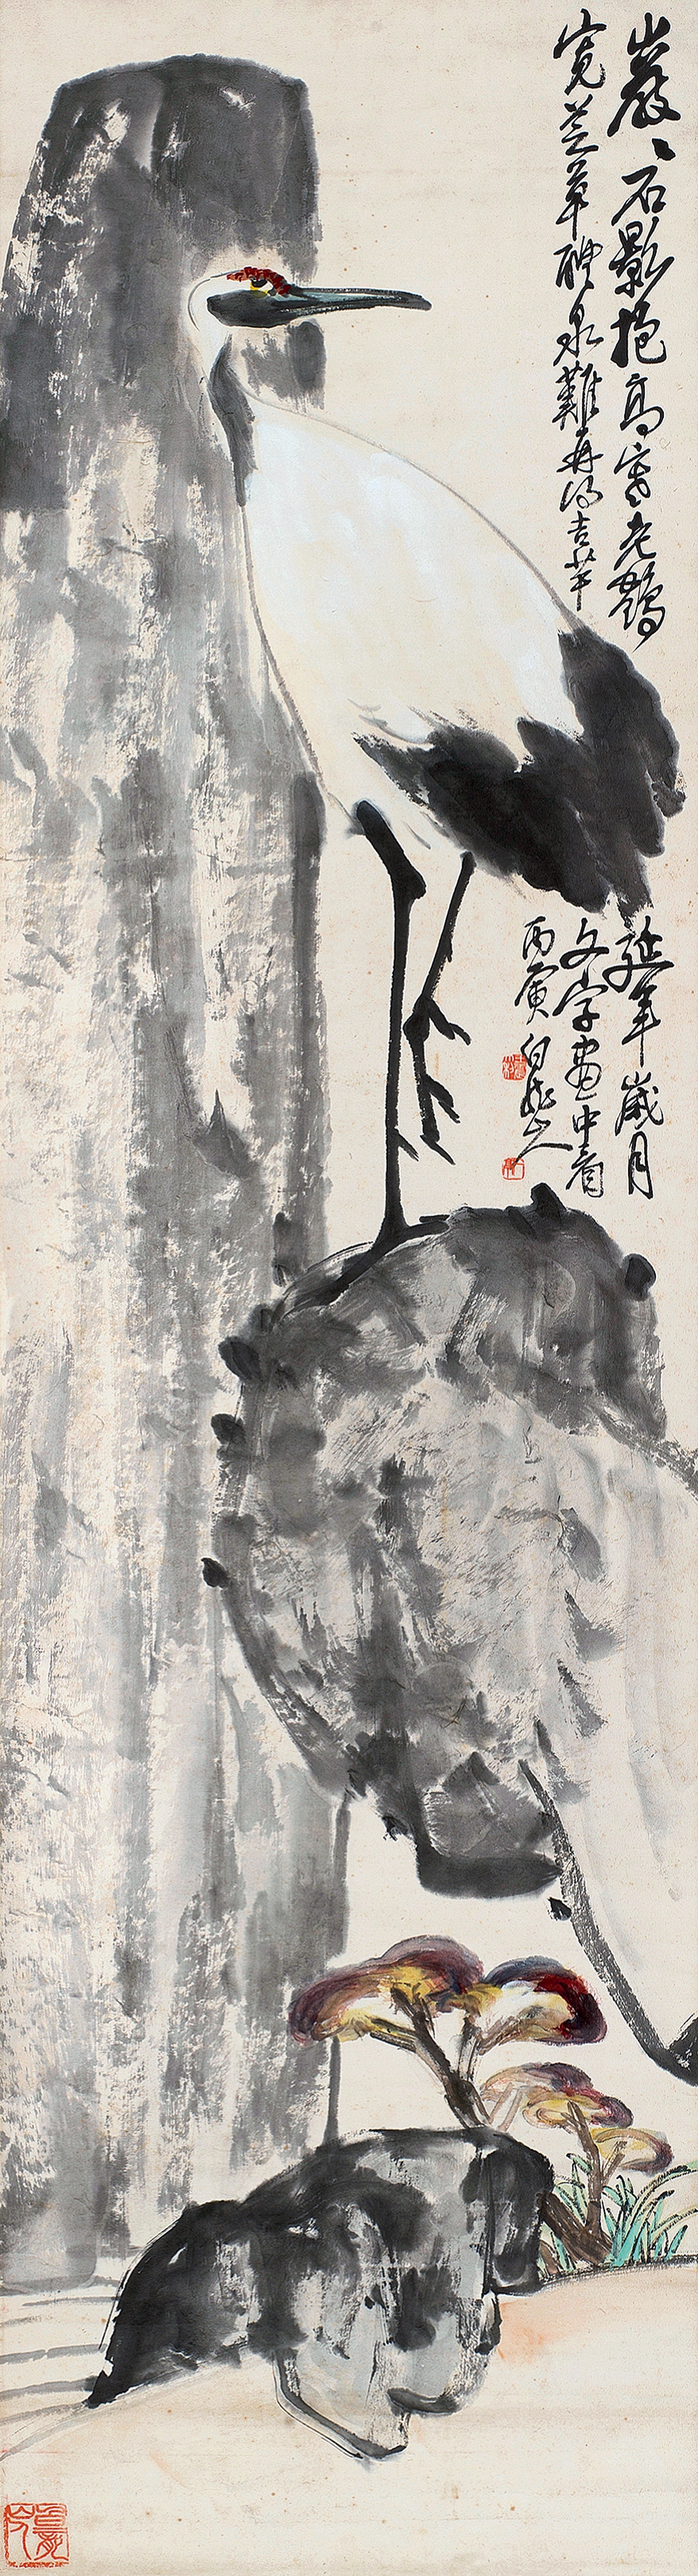 巖、石影挹高寒老鶴
寬芝草醴泉難再得吉羊
延年歲月
文字畫中看
丙寅 白龍山人